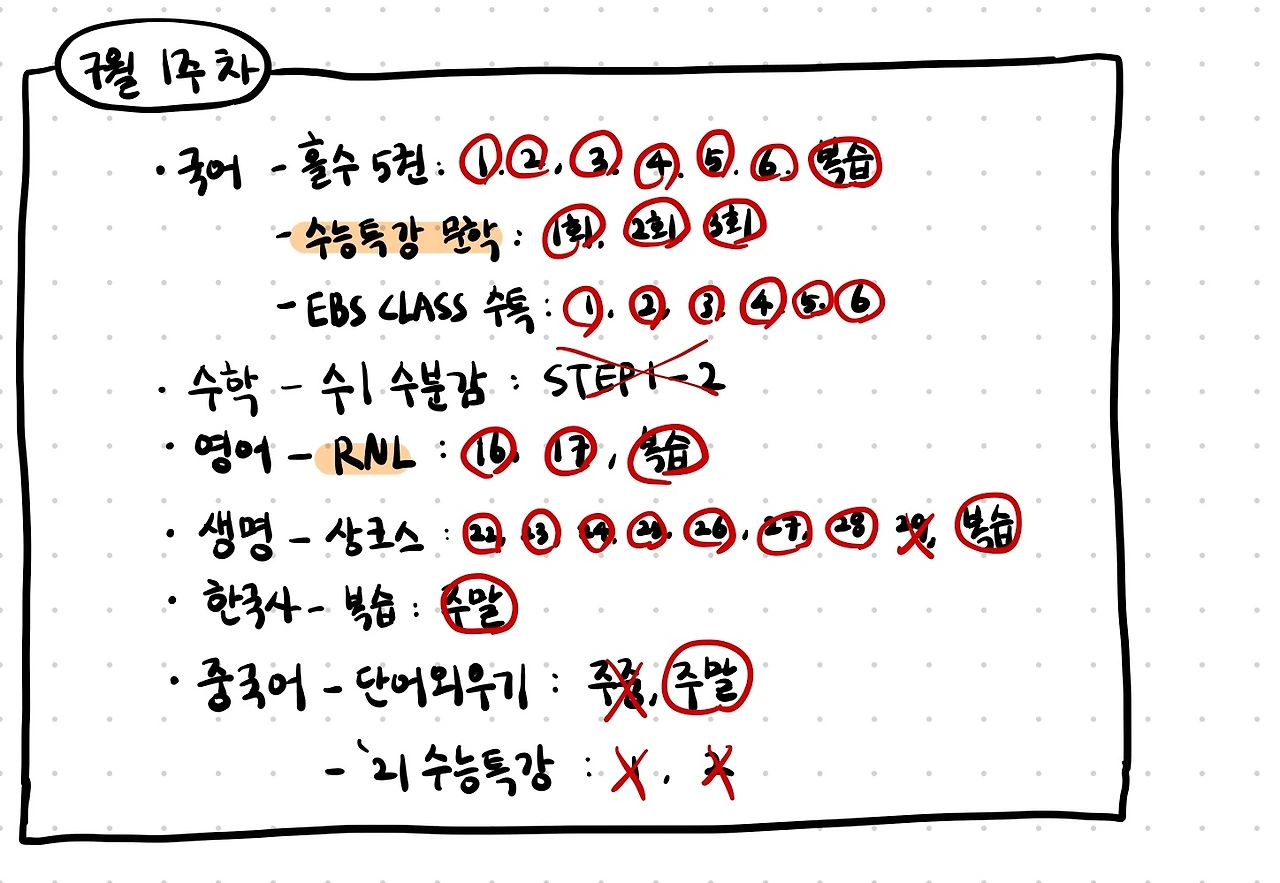 7월 1주차
· 국어 - 홀수 5권 : 1, 2, 3, 4, 5, 6, 복습
- 수능특강 문학 : 1회, 2회, 3회
- EBS CLASS 수특 : 1, 2, 3, 4, 5, 6
· 수학 - 수1 수분감 : STEP1-2
· 영어 - RNL : 16, 17, 복습
· 생명 - 상크스 : 22, 23, 24, 25, 26, 27, 28, 29, 복습
· 한국사 - 복습 : 주말
· 중국어 - 단어외우기 : 주중, 주말
- '21 수능특강 : 1, 2